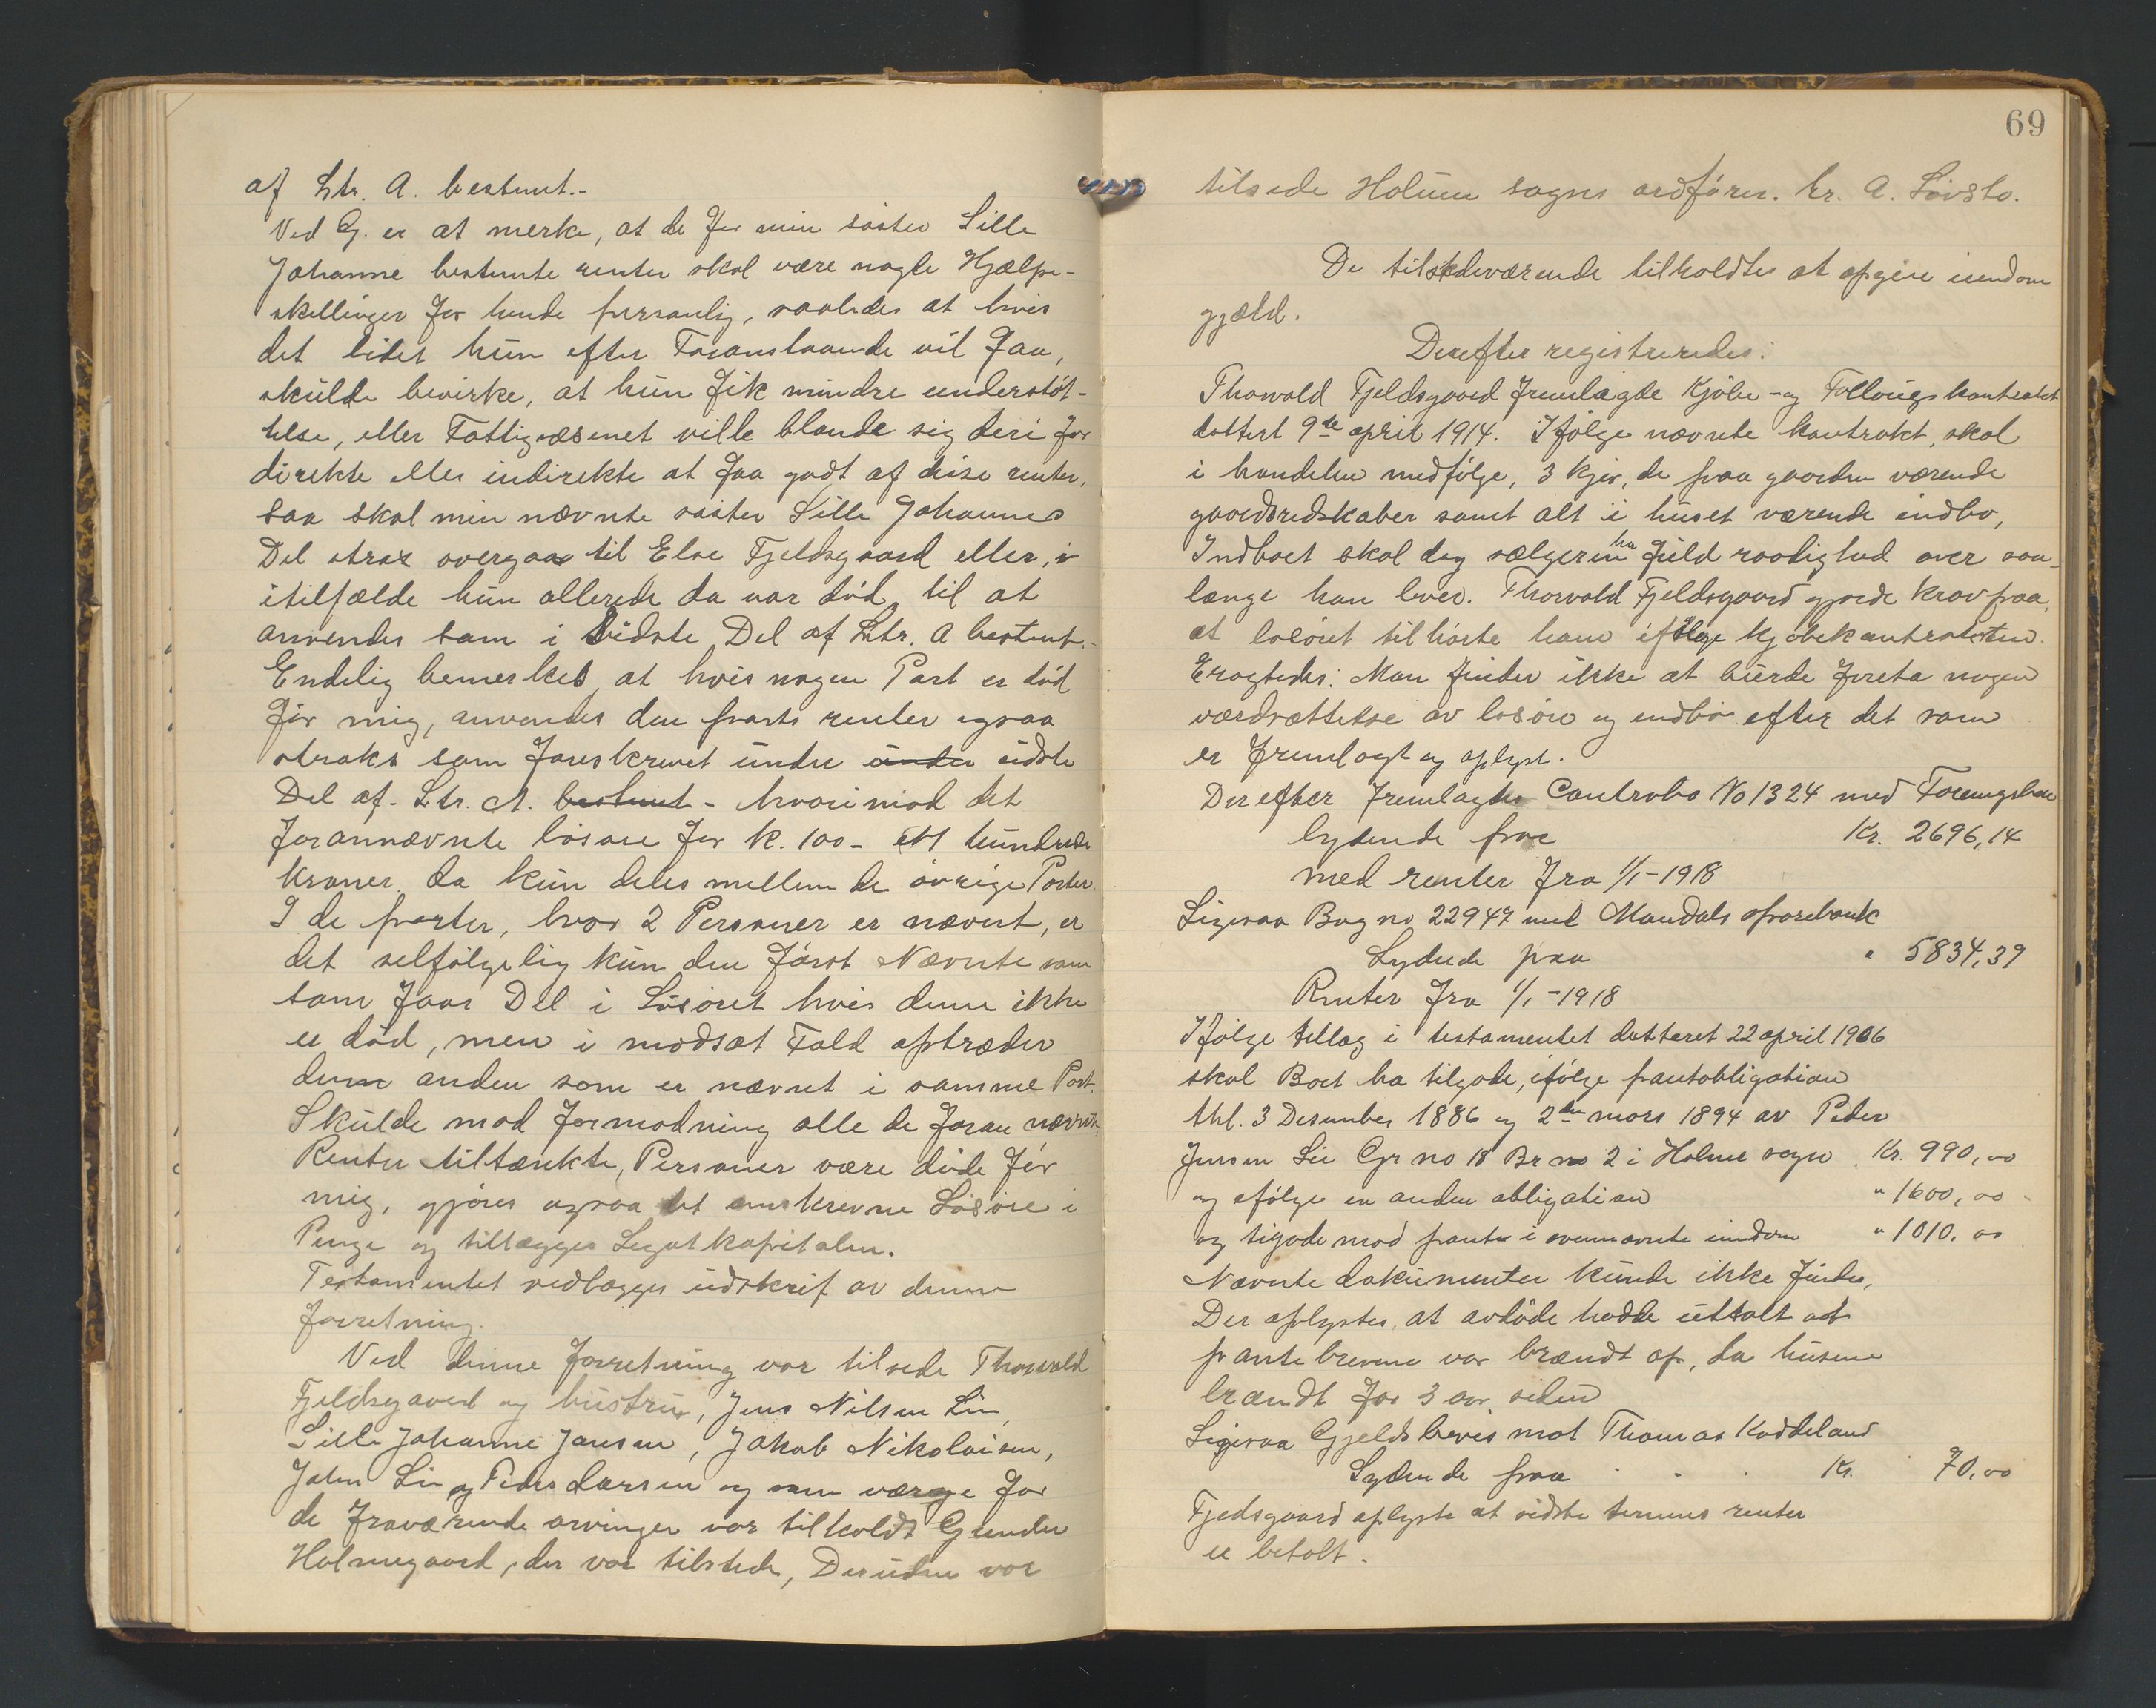 af Ltr. A. bestemt.-
Ved G. er at merke, at de for min søster Lille
Johanne bestemte renter skal være nogle Hjælpe-
skillinger for hende personlig, saaledes at hvis
det bidet hun efter Foranstaaende vil faa,
skulde bevirke, at hun fik mindre understøt-
telse, eller Fattigvæsenet ville blande sig deri for
direkte eller indirekte at faa godt af disse renter,
saa skal min nævnte søster Lille Johannes
Del strax overgaa til Else Fjeldsgaard eller, i
itilfælde hun allerede da var död, til at
anvendes som i Sidste Del af Ltr. A bestemt.-
Endelig bemerkes at hvis nogen Part er död
för mig, anvendes den parts renter ogsaa
straks som foreskrevet under under sidste
Del af Ltr. A. bestemt - hvorimod det
forannævnte lösöre for K. 100 - ett hundrede
kroner, da kun deles mellem de övrige Parter
I de parter, hvor 2 Personer er nævnt, er
det selfölgelig kun den först Nævnte som
som faar Del i Lösöret hvis denne ikke
er död, men i modsat Fald optræder
denn anden som er nævnt i samme Part.
Skulde mod formodning alle de foran nævnte
Renter tiltænkte, Personer være döde för
mig, gjöres ogsaa det omskrevne Lösöre i
Penge og tillægges Legatkapitalen.
Testamentet vedlægges udskrif av denne
forretning.
Ved denne forretning var tilsede Thorvald
Fjeldsgaard og hustru, Jens Nilsen Lie,
Lille Johanne Jansen, Jakob Nikolaisen,
John Lie og Peder Larsen og som værge for
de fraværende arvinger var tilkaldt Gunder
Holmegaard, der var tilstede, Desuden var
69
tilsede Holum sogns ordförer. hr. A. Lövslo.
De tilstedeværende tilholdtes at opgive eiendom
gjæld.
Derefter registreredes:
Thorvald Fjeldsgaard fremlagde Kjöbe- og Follougskontrakt
dattert 9de april 1914. Ifölge nævnte kontrakt, skal
i handelen medfölge, 3 kjør, de paa gaarden værende
gaardsredskaber samt alt i huset værende indbo,
Indboet skal dog sælgeren ha fuld raadighed over saa-
længe han lever. Thorvald Fjeldsgaard gjorde krav paa,
at lösöret tilhörte ham ifölge kjöbekontrakten.
Eragtedes: Man finder ikke at burde foreta nogen
værdsættelse av lösöre og indbo efter det som
er fremlagt og oplyst.
Derefter fremlagdes Contrabo No 1324 med
lydende paa Kr. 2696,14
med renter fra 1/1-1918
Ligesaa Bog no 22947 med Mandals sparebank
Lydende paa " 5834,39
Renter fra 1/1-1918
Ifölge tillæg i testamentet datteret 22 april 1906
skal Boet ha tilgode, ifölge pantobligation
thl. 3 Desember 1886 og 2den mars 1894 av Peder
Jensen Lie Gr no 18 Br no 2 i Holme sogn Kr. 990,00
og efölge en anden obligation " 1600,00
og tigode mod pante i ovennævnte eiendom " 1010,00
Nævnte dokumenter kunde ikke findes,
Der oplystes, at avdöde hadde uttalt at
pantebrevene var brændt op, da husene
brændt for 3 aar siden
Ligesaa Gjeldsbevis mot Thomas Koddeland
Lydende paa . . . Kr. 70,00
Fjedsgaard oplyste at sidste termins renter
er betalt.